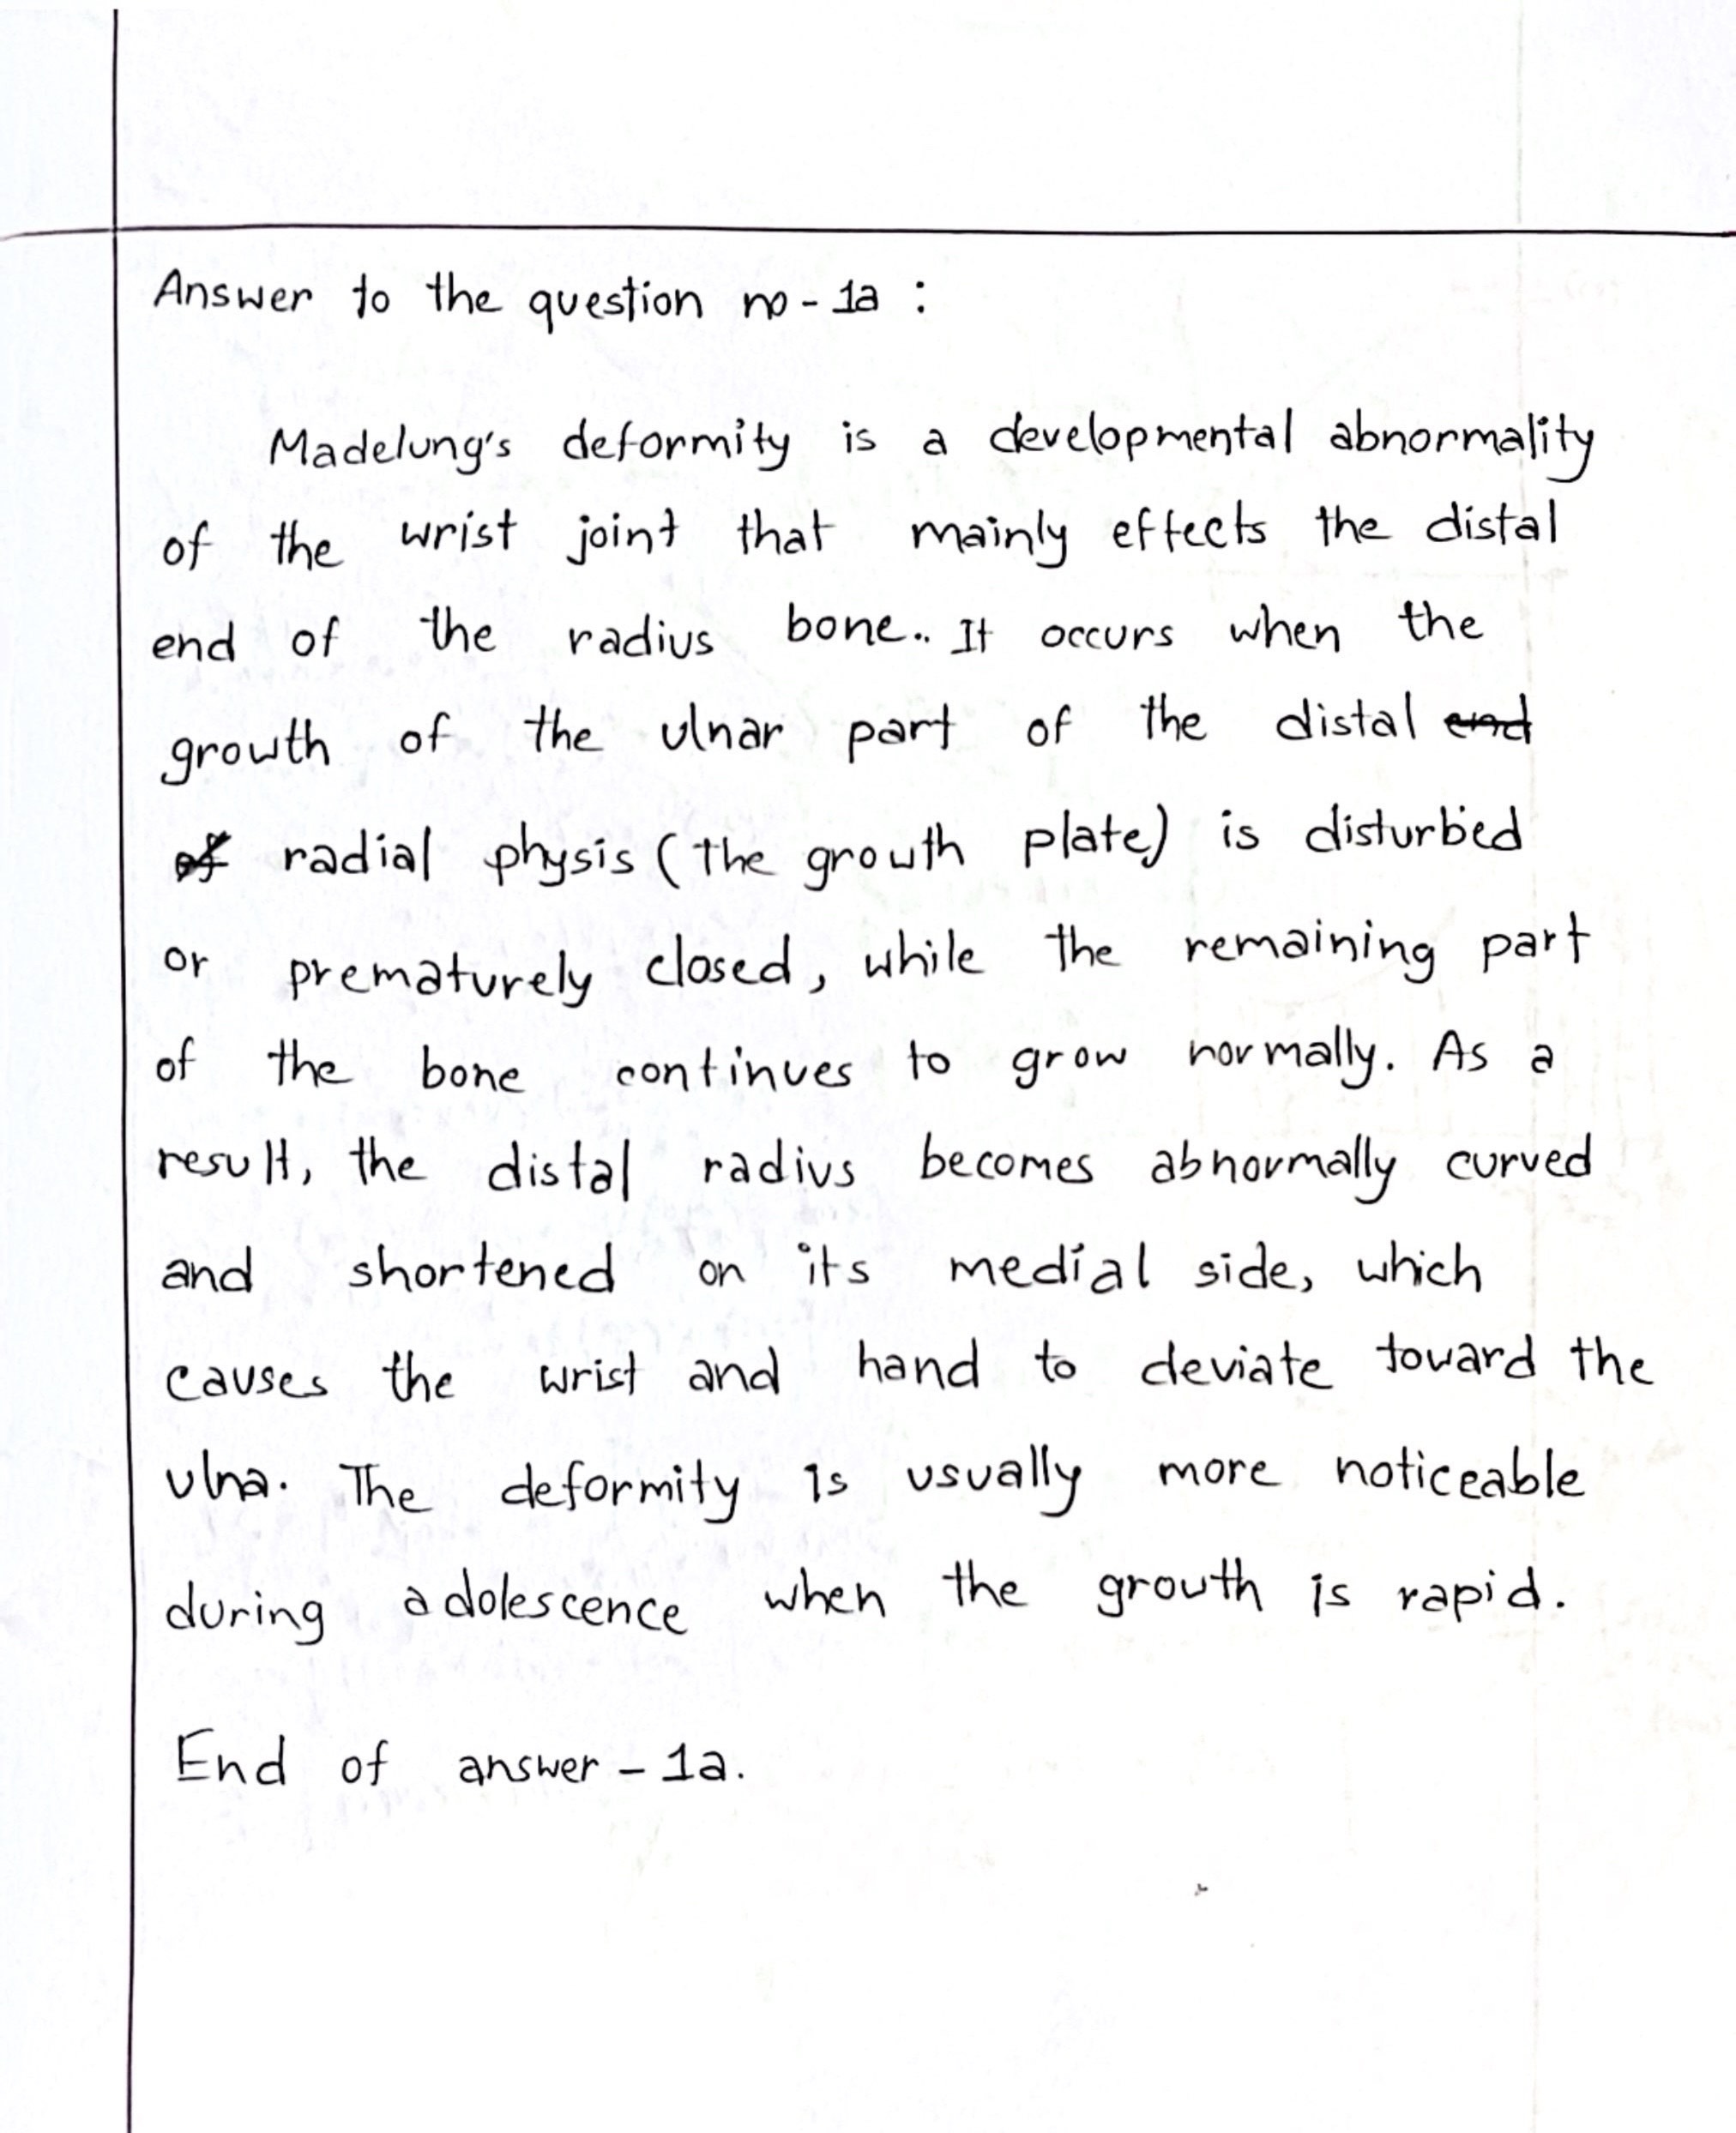 Answer to the question no - 1a :
Madelung's deformity is a developmental abnormality
of the wrist joint that mainly effects the distal
end of the radius bone.. It occurs when the
growth of the ulnar part of the distal end
of radial physis (the growth plate) is disturbed
or prematurely closed, while the remaining part
of the bone continues to grow normally. As a
result, the distal radius becomes abnormally curved
and shortened on its medial side, which
causes the wrist and hand to deviate toward the
ulna. The deformity is usually more noticeable
during adolescence when the growth is rapid.
End of answer - 1a.